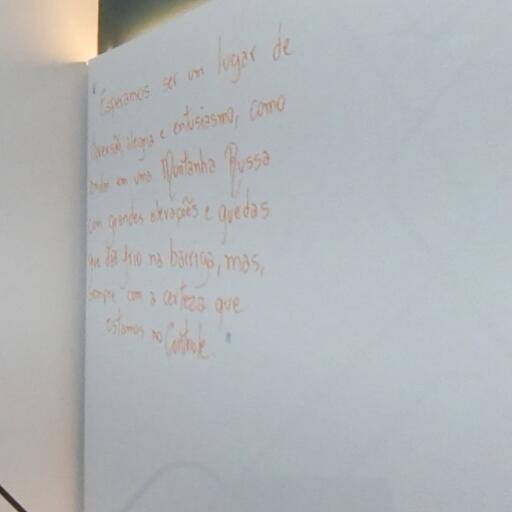 "Esperamos ser um lugar de
diversão, alegria e entusiasmo, como
andar em uma Montanha Russa
com grandes elevações e quedas
que dão frio na barriga, mas,
sempre com a certeza que
estamos no Controle."